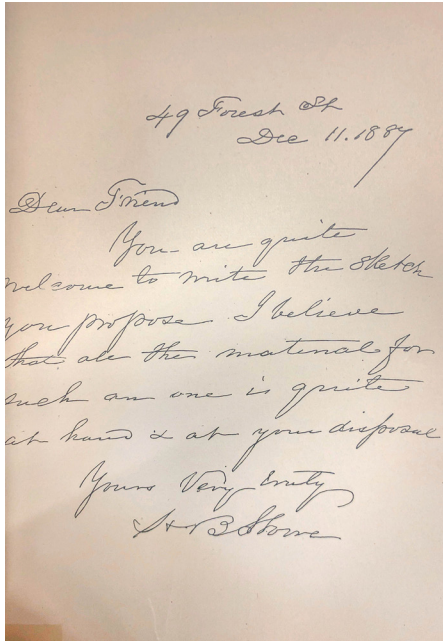 49 Forest St
Dec 11. 1887
Dear Friend
You are quite
welcome to write the sketch
you propose I believe
that all the material for
such an one is quite
at hand & at your disposal
Yours Very truly
H B Stowe